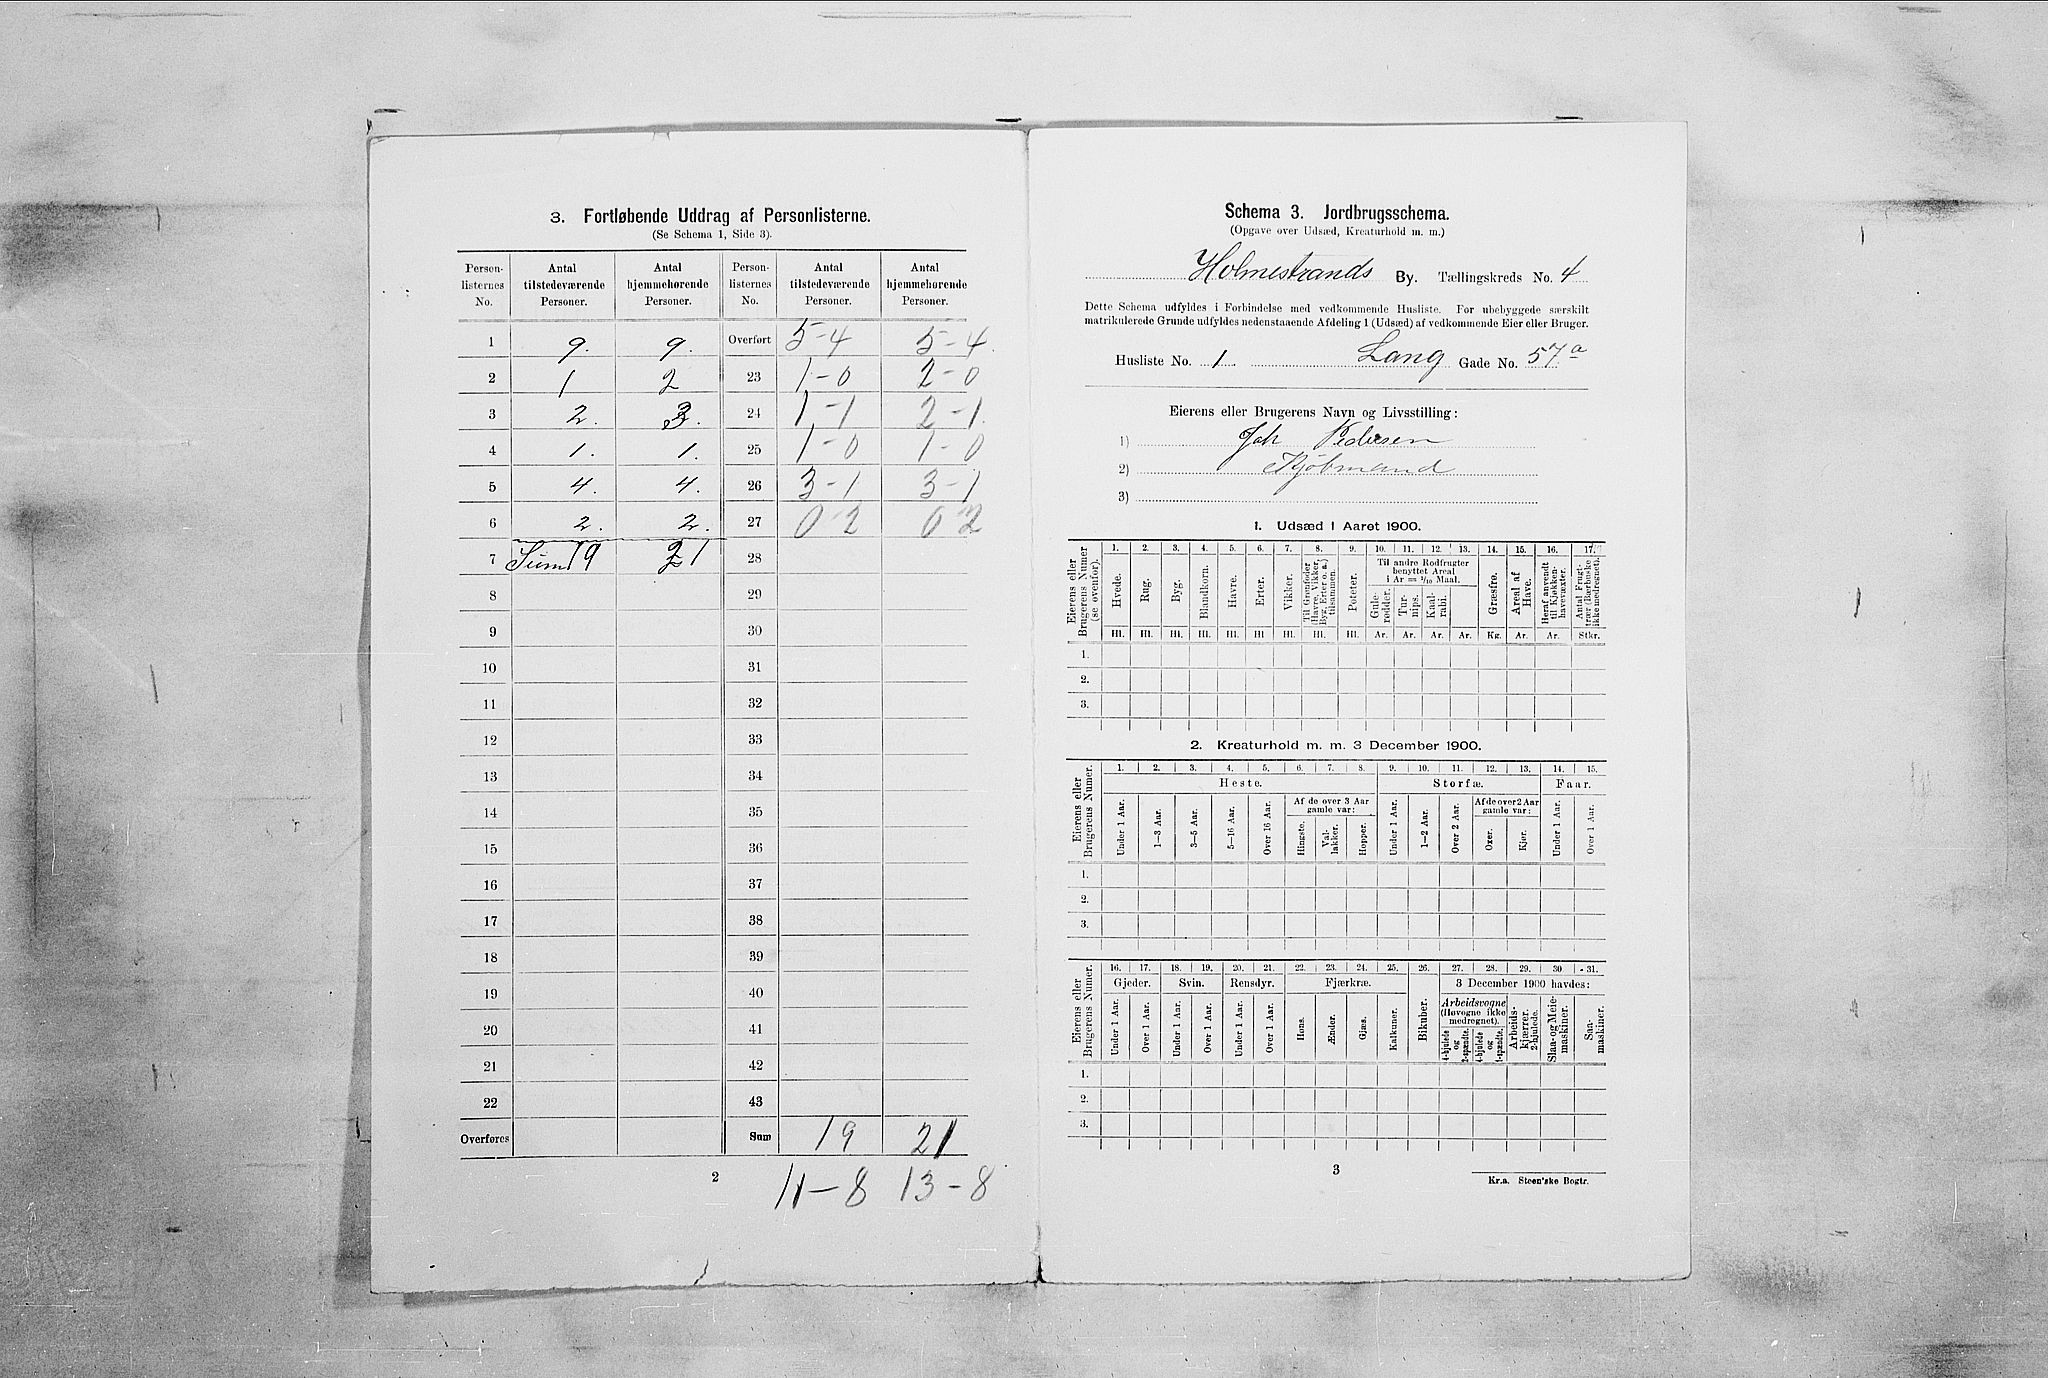 3. Fortløbende Uddrag af Personlisterne.
(Se Schema 1, Side 3).
Person-listernes No. | Antal tilstedeværende Personer. | Antal hjemmehørende Personer. | Person-listernes No. | Antal tilstedeværende Personer. | Antal hjemmehørende Personer.
1 | 9. | 9. | Overført | 5-4 | 5-4.
2 | 1 | 2 | 23 | 1-0 | 2-0
3 | 2. | 3. | 24 | 1-1 | 2-1.
4 | 1. | 1. | 25 | 1-0 | 1-0
5 | 4. | 4. | 26 | 3-1 | 3-1
6 | 2. | 2. | 27 | 0-2 | 0-2
7 | Sum 19 | 21 | 28
8 | 29
9 | 30
10 | 31
11 | 32
12 | 33
13 | 34
14 | 35
15 | 36
16 | 37
17 | 38
18 | 39
19 | 40
20 | 41
21 | 42
22 | 43
Overføres | Sum | 19 | 21
2
11-8 13-8
Schema 3. Jordbrugsschema.
(Opgave over Udsæd, Kreaturhold m. m.)
Holmestrands By. Tællingskreds No. 4
Dette Schema udfyldes i Forbindelse med vedkommende Husliste. For ubebyggede særskilt
matrikulerede Grunde udfyldes nedenstaaende Afdeling 1 (Udsæd) af vedkommende Eier eller Bruger.
Husliste No. 1. Lang Gade No. 57a
Eierens eller Brugerens Navn og Livsstilling:
1) Joh Pedersen
2) Kjøbmand
3)
1. Udsæd i Aaret 1900.
Eierens eller Brugerens Numer (se ovenfor).
1. 2. 3. 4. 5. 6. 7. 8. 9. 10. 11. 12. 13. 14. 15. 16. 17.
Hvede. Rug. Byg. Blandkorn. Havre. Erter. Vikker. Til Grønfoder (Havre, Vikker, Byg, Erter o. a.) tilsammen. Poteter. Til andre Rodfrugter benyttet Areal i Ar = 1/10 Maal. Gule-rødder. Tur-nips. Kaal-rabi. Græsfrø. Areal af Have. Heraf anvendt til Kjøkken-havevæxter. Antal Frugt-trær (Bærbuske ikke medregnet).
Hl. Hl. Hl. Hl. Hl. Hl. Hl. Hl. Hl. Ar. Ar. Ar. Ar. Kg. Ar. Ar. Stkr.
1.
2.
3.
2. Kreaturhold m. m. 3 December 1900.
Eierens eller Brugerens Numer.
1. 2. 3. 4. 5. 6. 7. 8. 9. 10. 11. 12. 13. 14. 15.
Heste. Storfæ. Faar.
Af de over 3 Aar gamle var: Af de over 2 Aar gamle var:
Under 1 Aar. 1—3 Aar. 3—5 Aar. 5—16 Aar. Over 16 Aar. Hingste. Val-lakker. Hopper. Under 1 Aar. 1—2 Aar. Over 2 Aar. Oxer. Kjør. Under 1 Aar. Over 1 Aar.
1.
2.
3.
Eierens eller Brugerens Numer.
16. 17. 18. 19. 20. 21. 22. 23. 24. 25. 26. 27. 28. 29. 30 31.
Gjeder. Svin. Rensdyr. Fjærkræ. 3 December 1900 havdes:
Under 1 Aar. Over 1 Aar. Under 1 Aar. Over 1 Aar. Under 1 Aar. Over 1 Aar. Høns. Ænder. Gjæs. Kalkuner. Bikuber. Arbeidsvogne (Høvogne ikke medregnet). 4-hjulede og 2-spændte. 4-hjulede og 1-spændte. Arbeids-kjærrer. 2-hjulede. Slaa- og Meie-maskiner. Saa-maskiner.
1.
2.
3.
3
Kr.a. Steen'ske Bogtr.